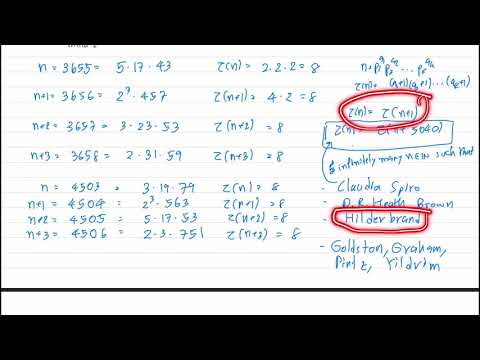 n = 3655 = 5·17·43 τ(n) = 2·2·2 = 8
n+1 = 3656 = 2³·457 τ(n+1) = 4·2 = 8
n+2 = 3657 = 3·23·53 τ(n+2) = 8
n+3 = 3658 = 2·31·59 τ(n+3) = 8
n = 4503 = 3·19·79 τ(n) = 8
n+1 = 4504 = 2³·563 τ(n+1) = 8
n+2 = 4505 = 5·17·53 τ(n+2) = 8
n+3 = 4506 = 2·3·751 τ(n+3) = 8
τ(n) = (a₁+1)(a₂+1)...(aₖ+1)
τ(n) = τ(n+1)
τ(n) = τ(n+5040)
infinitely many n∈ℕ such that
- Claudia Spiro
- D.R. Heath Brown
- Hilderbrand
- Goldston, Graham,
Pintz, Yildrim